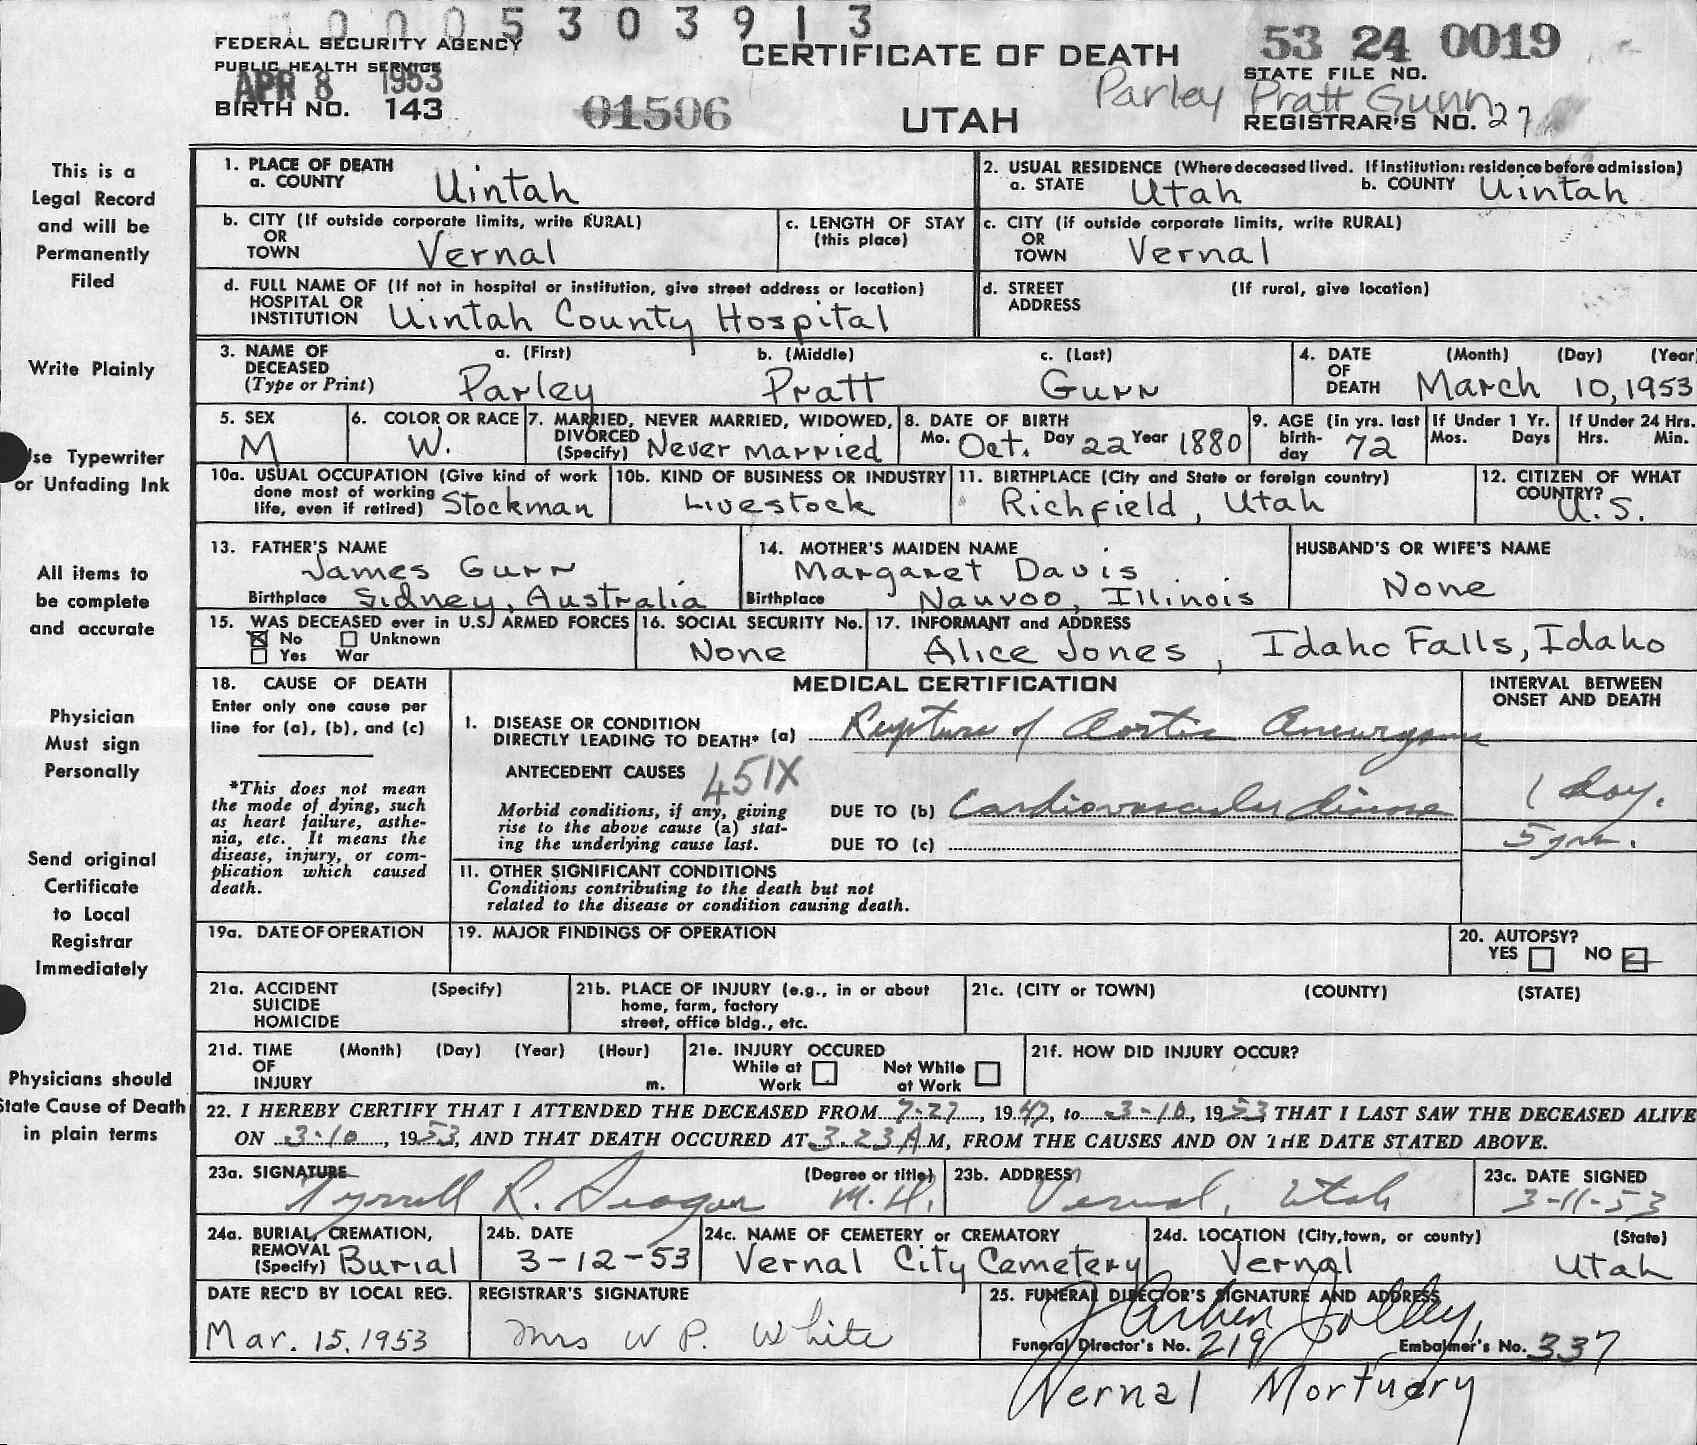 0005303913
FEDERAL SECURITY AGENCY
PUBLIC HEALTH SERVICE
APR 8 1953
BIRTH NO. 143
01506
CERTIFICATE OF DEATH
UTAH
53 24 0019
STATE FILE NO.
Parley Pratt Gunn
REGISTRAR'S NO. 27
This is a
Legal Record
and will be
Permanently
Filed
Write Plainly
Use Typewriter
or Unfading Ink
All items to
be complete
and accurate
Physician
Must sign
Personally
Send original
Certificate
to Local
Registrar
Immediately
Physicians should
State Cause of Death
in plain terms
1. PLACE OF DEATH
a. COUNTY Uintah
2. USUAL RESIDENCE (Where deceased lived. If institution: residence before admission)
a. STATE Utah b. COUNTY Uintah
b. CITY (If outside corporate limits, write RURAL)
OR
TOWN Vernal
c. LENGTH OF STAY
(this place)
c. CITY (if outside corporate limits, write RURAL)
OR
TOWN Vernal
d. FULL NAME OF (If not in hospital or institution, give street address or location)
HOSPITAL OR
INSTITUTION Uintah County Hospital
d. STREET (If rural, give location)
ADDRESS
3. NAME OF DECEASED
(Type or Print)
a. (First) b. (Middle) c. (Last)
Parley Pratt Gunn
4. DATE OF DEATH (Month) (Day) (Year
March 10, 1953
5. SEX
M
6. COLOR OR RACE
W.
7. MARRIED, NEVER MARRIED, WIDOWED,
DIVORCED
(Specify) Never Married
8. DATE OF BIRTH
Mo. Oct. Day 22 Year 1880
9. AGE (in yrs. last
birth-
day 72
If Under 1 Yr.
Mos. Days
If Under 24 Hrs.
Hrs. Min.
10a. USUAL OCCUPATION (Give kind of work
done most of working
life, even if retired) Stockman
10b. KIND OF BUSINESS OR INDUSTRY
Livestock
11. BIRTHPLACE (City and State or foreign country)
Richfield, Utah
12. CITIZEN OF WHAT
COUNTRY?
U.S.
13. FATHER'S NAME
James Gunn
Birthplace Sidney, Australia
14. MOTHER'S MAIDEN NAME
Margaret Davis
Birthplace Nauvoo, Illinois
HUSBAND'S OR WIFE'S NAME
None
15. WAS DECEASED ever in U.S. ARMED FORCES
No Unknown
Yes War
16. SOCIAL SECURITY No.
None
17. INFORMANT and ADDRESS
Alice Jones, Idaho Falls, Idaho
18. CAUSE OF DEATH
Enter only one cause per
line for (a), (b), and (c)
*This does not mean
the mode of dying, such
as heart failure, asthe-
nia, etc. It means the
disease, injury, or com-
plication which caused
death.
MEDICAL CERTIFICATION
INTERVAL BETWEEN
ONSET AND DEATH
I. DISEASE OR CONDITION
DIRECTLY LEADING TO DEATH* (a) Rupture of Aortic Aneurysm
ANTECEDENT CAUSES 451X
1 day.
Morbid conditions, if any, giving
rise to the above cause (a) stat-
ing the underlying cause last.
DUE TO (b) Cardiovascular disease
5 yrs.
DUE TO (c)
11. OTHER SIGNIFICANT CONDITIONS
Conditions contributing to the death but not
related to the disease or condition causing death.
19a. DATE OF OPERATION
19. MAJOR FINDINGS OF OPERATION
20. AUTOPSY?
YES NO
21a. ACCIDENT (Specify)
SUICIDE
HOMICIDE
21b. PLACE OF INJURY (e.g., in or about
home, farm, factory
street, office bldg., etc.
21c. (CITY or TOWN) (COUNTY) (STATE)
21d. TIME (Month) (Day) (Year) (Hour)
OF
INJURY m.
21e. INJURY OCCURED
While at Work Not While at Work
21f. HOW DID INJURY OCCUR?
22. I HEREBY CERTIFY THAT I ATTENDED THE DECEASED FROM 7-27, 1947, to 3-10, 1953, THAT I LAST SAW THE DECEASED ALIVE
ON 3-10, 1953, AND THAT DEATH OCCURED AT 3:23 A M, FROM THE CAUSES AND ON THE DATE STATED ABOVE.
23a. SIGNATURE (Degree or title)
Tyrrell R. Seager M.D.
23b. ADDRESS
Vernal, Utah
23c. DATE SIGNED
3-11-53
24a. BURIAL, CREMATION,
REMOVAL
(Specify) Burial
24b. DATE
3-12-53
24c. NAME OF CEMETERY or CREMATORY
Vernal City Cemetery
24d. LOCATION (City, town, or county) (State)
Vernal Utah
DATE REC'D BY LOCAL REG.
Mar. 15, 1953
REGISTRAR'S SIGNATURE
Mrs W P. White
25. FUNERAL DIRECTOR'S SIGNATURE AND ADDRESS
Funeral Director's No. 219 Embalmer's No. 337
Vernal Mortuary